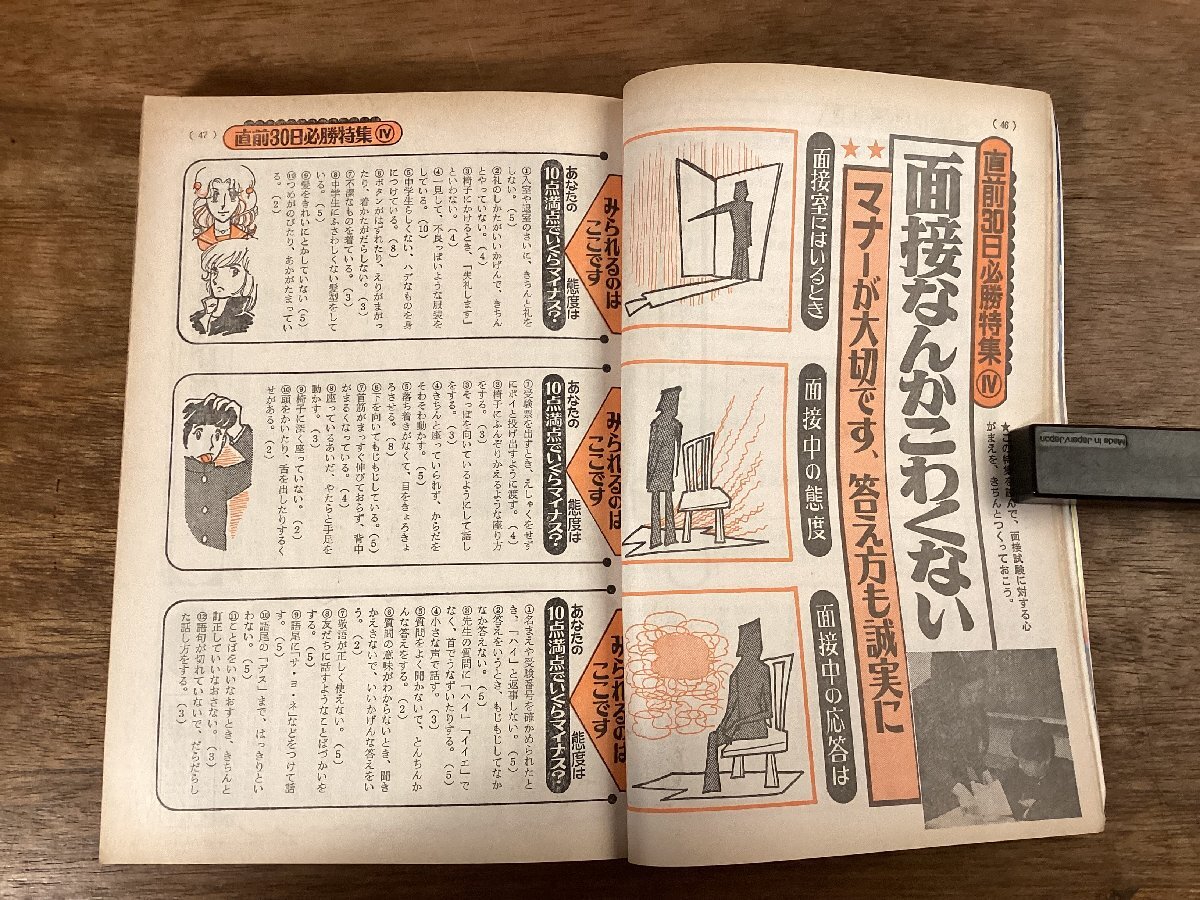 (46)
直前30日必勝特集Ⅳ
面接なんかこわくない
★★マナーが大切です、答え方も誠実に
がまえを、きちんとつくっておこう。
Made in Japan/Japon
面接室にはいるとき
面接中の態度
面接中の応答は
(47)
直前30日必勝特集Ⅳ
みられるのは
ここです
あなたの態度は
10点満点でいくらマイナス?
①入室や退室のさいに、きちんと礼を
しない。(5)
②礼のしかたがいいかげんで、きちん
とやっていない。(4)
③椅子にかけるとき、「失礼します」
といわない。(4)
④一見して、不良っぽいような服装を
している。(10)
⑤中学生らしくない、ハデなものを身
につけている。(8)
⑥ボタンがはずれたり、えりがまがっ
たり、着かたがだらしない。(3)
⑦不潔なものを着ている。(3)
⑧中学生にふさわしくない髪型をして
いる。(5)
⑨髪をきれいにとかしていない(5)
⑩つめがのびたり、あかがたまってい
る。(2)
みられるのは
ここです
あなたの態度は
10点満点でいくらマイナス?
①受験票を出すとき、えしゃくをせず
にポイと投げ出すように渡す。(4)
②椅子にふんぞりかえるような座り方
をする。(3)
③そっぽを向いているようにして話し
をする。(3)
④きちんと座っていられず、からだを
そわそわ動かす。(5)
⑤落ち着きがなくて、目をきょろきょ
ろさせる。(8)
⑥下を向いてもじもじしている。(5)
⑦首筋がまっすぐ伸びておらず、背中
がまるくなっている。(4)
⑧座っているあいだ、やたらと手足を
動かす。(3)
⑨椅子に深く座っていない。(2)
⑩頭をかいたり、舌を出したりするく
せがある。(2)
みられるのは
ここです
あなたの態度は
10点満点でいくらマイナス?
①名まえや受験番号を確かめられたと
き、「ハイ」と返事しない。(5)
②答えをいうとき、もじもじしてなか
なか答えない。(5)
③先生の質問に「ハイ」「イイエ」で
なく、首でうなずいたりする。(5)
④小さな声で話す。(3)
⑤質問をよく聞かないで、とんちんか
んな答えをする。(2)
⑥質問の意味がわからないとき、聞き
かえさないで、いいかげんな答えをい
う。(2)
⑦敬語が正しく使えない。(5)
⑧友だちに話すようなことばづかいを
する。(5)
⑨語尾に「サ・ヨ・ネ」などをつけて話
す。(5)
⑩語尾の「デス」まで、はっきりとい
わない。(5)
⑪ことばをいいなおすとき、きちんと
訂正していいなおさない。(3)
⑫語句が切れていないで、だらだらし
た話し方をする。(3)